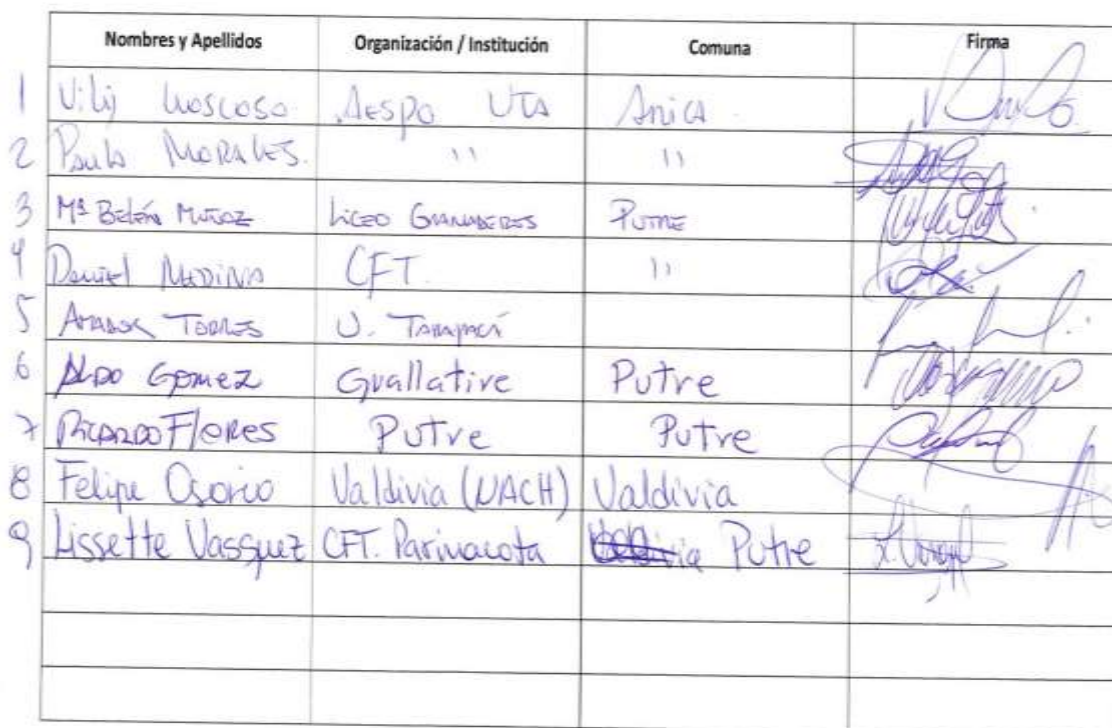 Nombres y Apellidos Organización / Institución Comuna Firma
1 Vily Moscoso Aespo UTA Arica
2 Paula MORALES. " "
3 Mª Belén Muñoz Liceo Granaderos Putre
4 Daniel Medina CFT. "
5 Amador Torres U. Tarapacá
6 Aldo Gomez Guallative Putre
7 Ricardo Flores Putre Putre
8 Felipe Osorio Valdivia (UACH) Valdivia
9 Lissette Vasquez CFT. Parinacota Putre